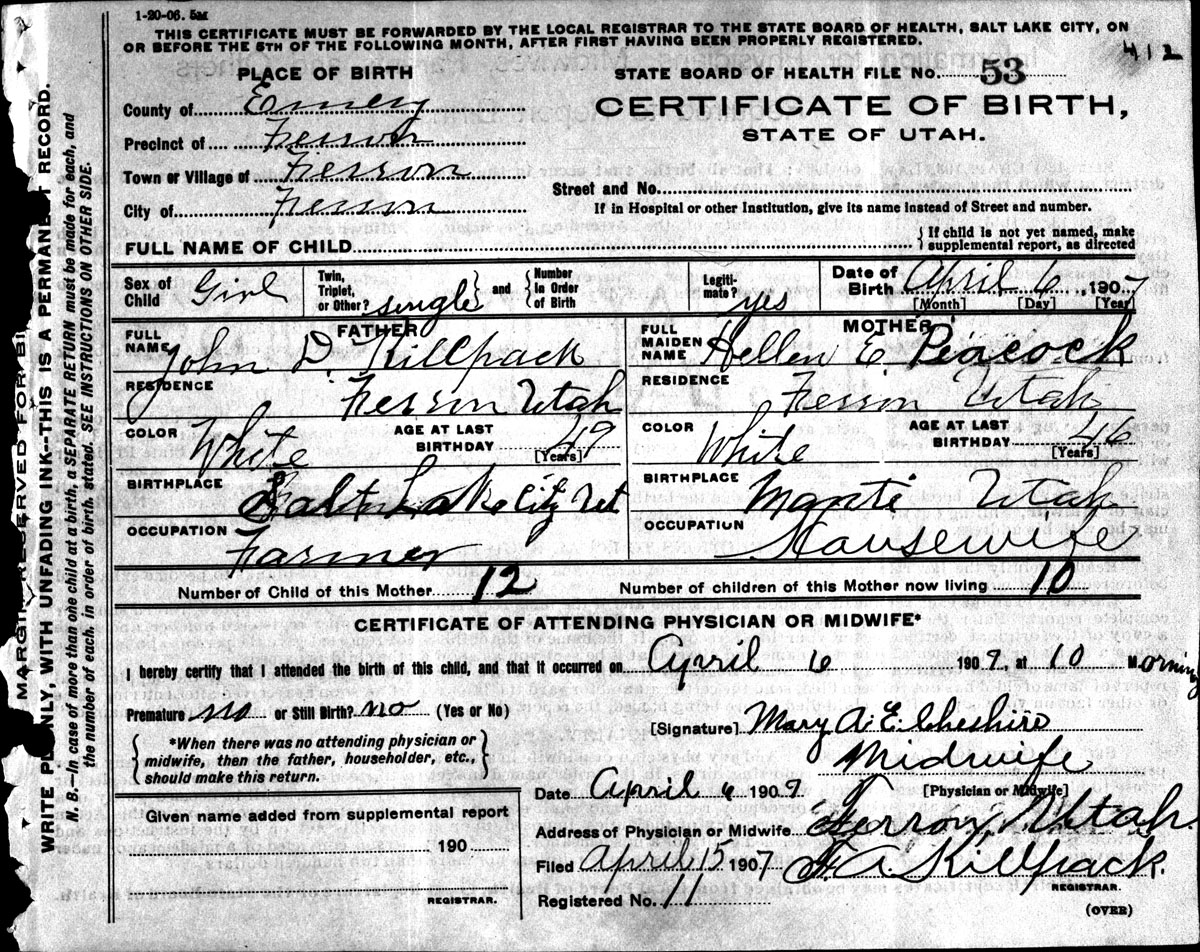 1-20-06. 5M
THIS CERTIFICATE MUST BE FORWARDED BY THE LOCAL REGISTRAR TO THE STATE BOARD OF HEALTH, SALT LAKE CITY, ON
OR BEFORE THE 5TH OF THE FOLLOWING MONTH, AFTER FIRST HAVING BEEN PROPERLY REGISTERED.
412
PLACE OF BIRTH
STATE BOARD OF HEALTH FILE NO. 53
County of Emery
CERTIFICATE OF BIRTH,
STATE OF UTAH.
Precinct of Ferron
Town or Village of Ferron
Street and No.
City of Ferron
If in Hospital or other Institution, give its name instead of Street and number.
FULL NAME OF CHILD
{ If child is not yet named, make
supplemental report, as directed
Sex of Child Girl
Twin, Triplet, or Other? single } and { Number in Order of Birth
Legiti-mate? yes
Date of Birth April 6, 1907
[Month] [Day] [Year]
FATHER
FULL NAME John D. Killpack
RESIDENCE Ferron Utah
COLOR White
AGE AT LAST BIRTHDAY 49
[Years]
BIRTHPLACE Salt Lake City Ut
OCCUPATION Farmer
MOTHER
FULL MAIDEN NAME Hellen E. Peacock
RESIDENCE Ferron Utah
COLOR White
AGE AT LAST BIRTHDAY 46
[Years]
BIRTHPLACE Manti Utah
OCCUPATION Housewife
Number of Child of this Mother 12
Number of children of this Mother now living 10
CERTIFICATE OF ATTENDING PHYSICIAN OR MIDWIFE*
I hereby certify that I attended the birth of this child, and that it occurred on April 6 1907, at 10 Morning
Premature no or Still Birth? no (Yes or No)
[Signature] Mary A. E. Cheshire
{ *When there was no attending physician or
midwife, then the father, householder, etc.,
should make this return. }
Midwife
[Physician or Midwife]
Date April 6 1907
Given name added from supplemental report
190
REGISTRAR.
Address of Physician or Midwife Ferron, Utah.
Filed April 15 1907 F A Killpack.
REGISTRAR.
Registered No. 11
(OVER)
MARGIN RESERVED FOR BI
WRITE PLAINLY, WITH UNFADING INK--THIS IS A PERMANENT RECORD.
N. B.--In case of more than one child at a birth, a SEPARATE RETURN must be made for each, and
the number of each, in order of birth, stated. SEE INSTRUCTIONS ON OTHER SIDE.